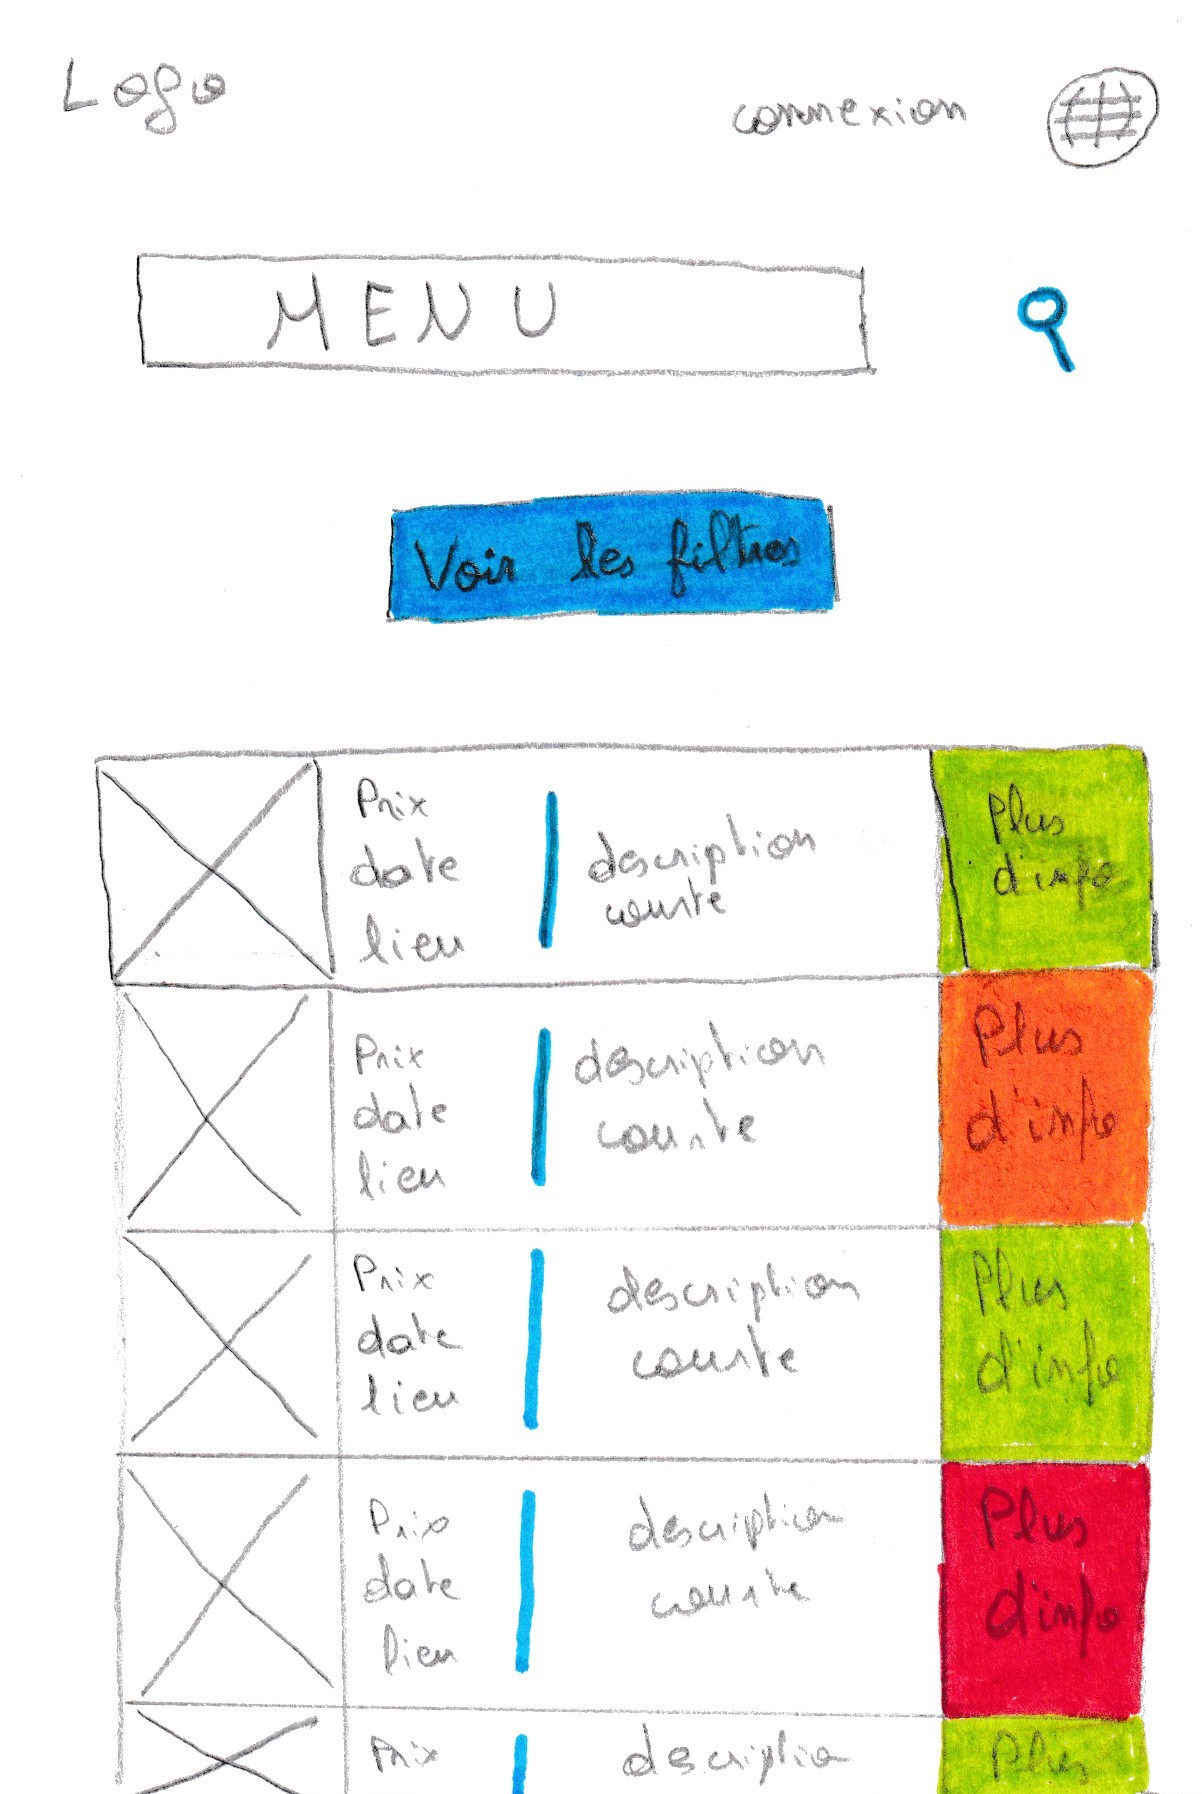 Logo
connexion
MENU
Voir les filtres
Prix
date
lieu
description
courte
Plus
d'info
Prix
date
lieu
description
courte
Plus
d'info
Prix
date
lieu
description
courte
Plus
d'info
Prix
date
lieu
description
courte
Plus
d'info
Prix
descriptio
Plus